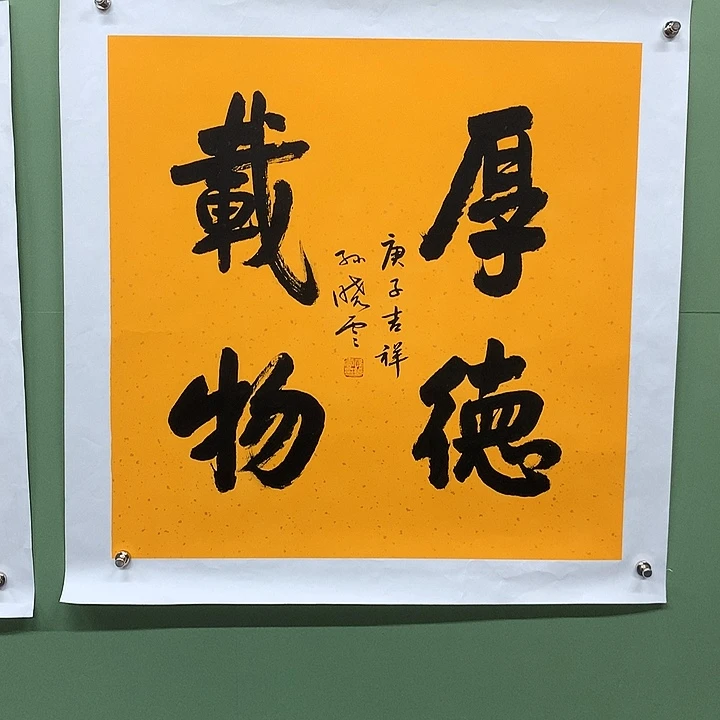 厚德
載物
庚子吉祥
孙晓云